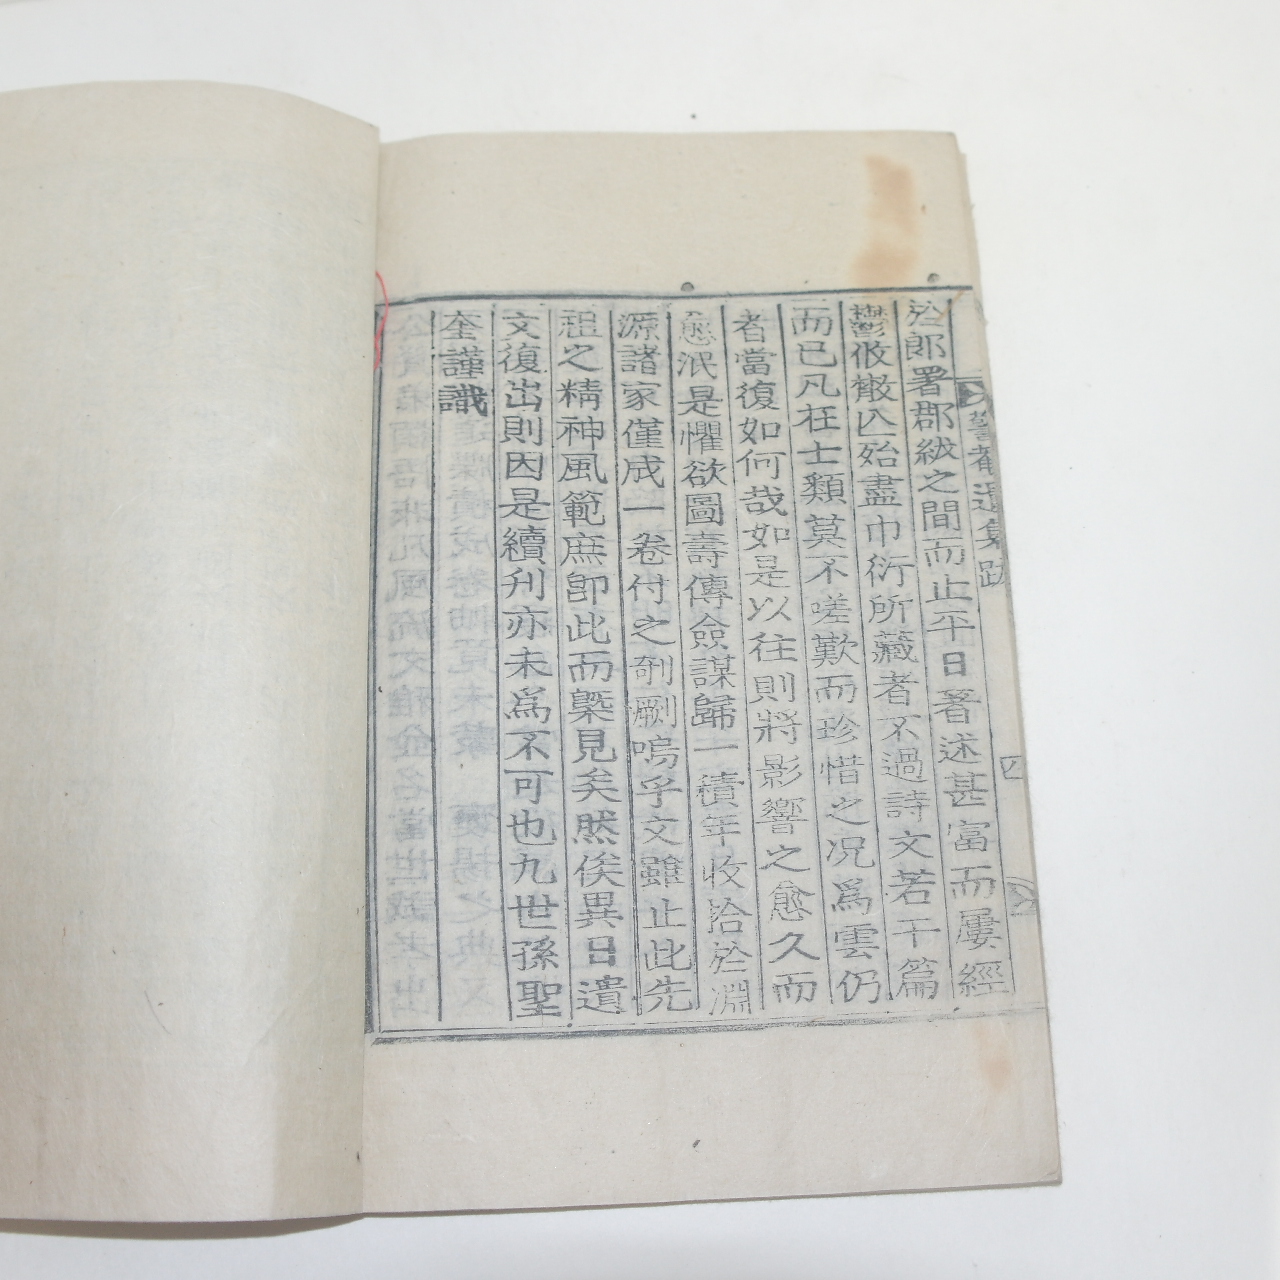 於郞署郡紱之間而止平日著述甚富而屢經
鬱攸散亾殆盡巾衍所藏者不過詩文若干篇
而已凡在士類莫不嗟歎而珍惜之况爲雲仍
者當復如何哉如是以往則將影響之愈久而
愈泯是懼欲圖壽傳僉謀歸一積年收拾於淵
源諸家僅成一卷付之剞劂嗚乎文雖止此先
祖之精神風範庶卽此而槩見矣然俟異日遺
文復出則因是續刋亦未爲不可也九世孫聖
奎謹識
遺集跋
四